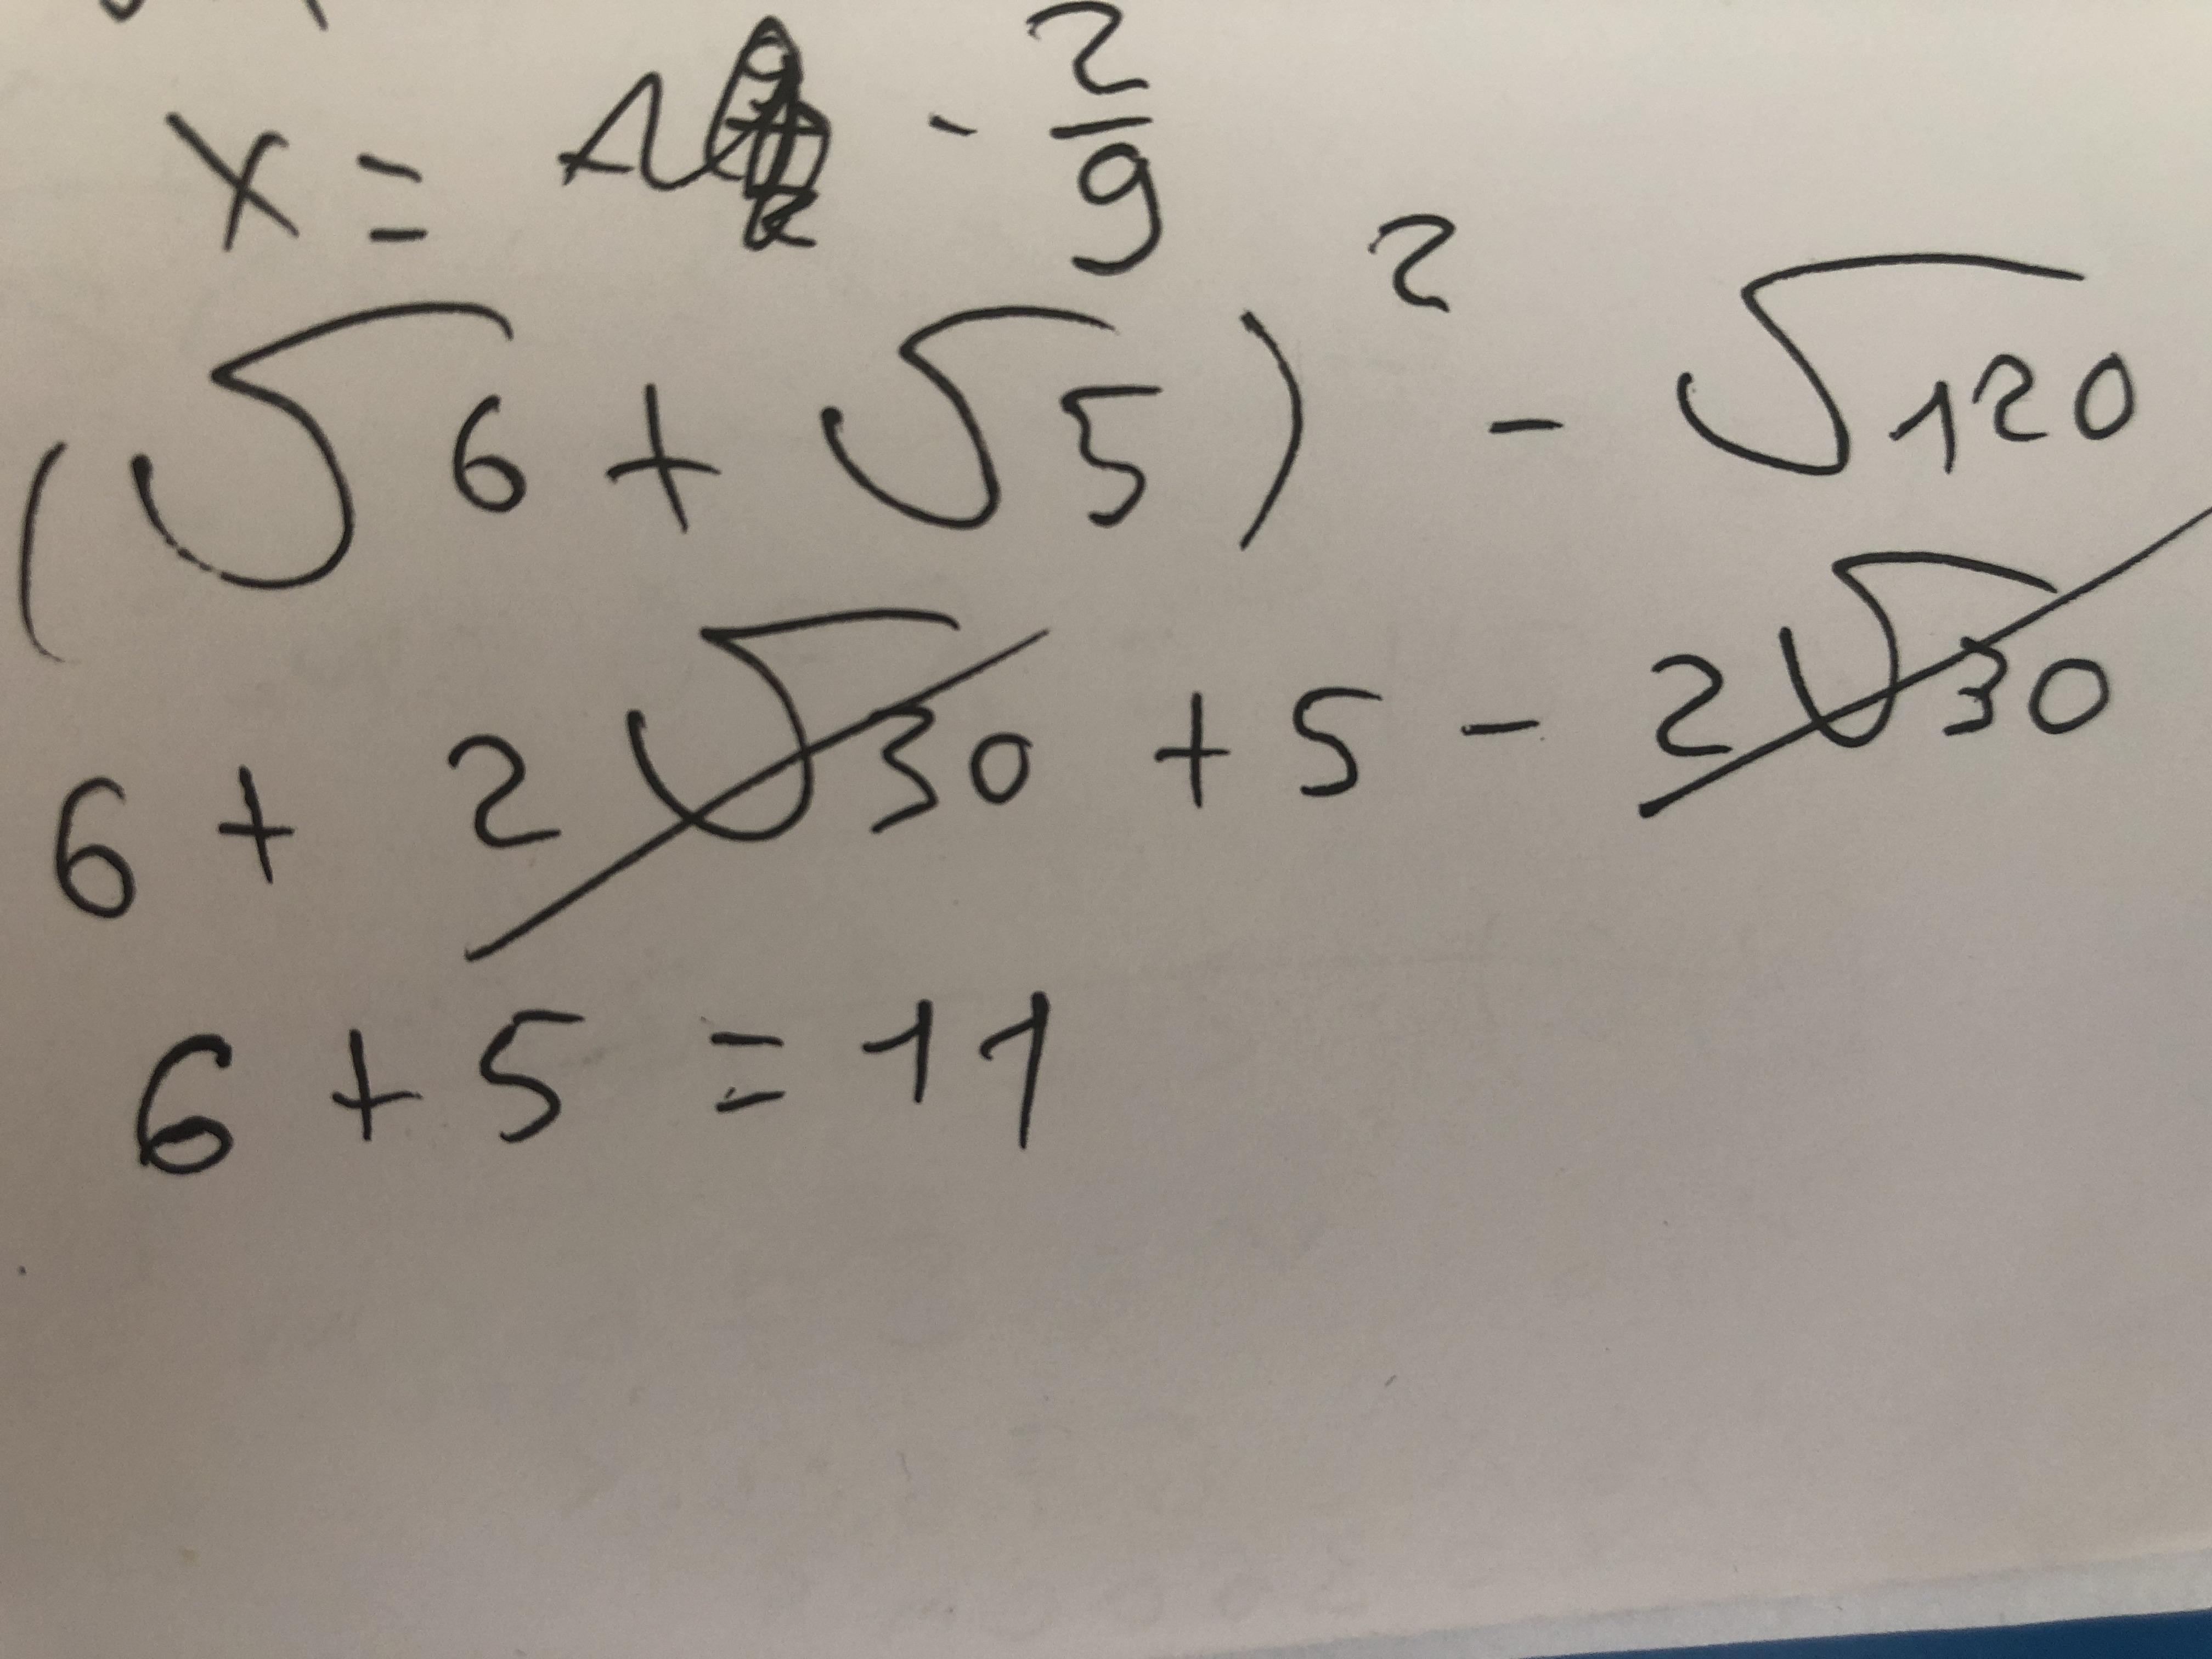 x = - 2/9
(√6 + √5)² - √120
6 + 2√30 + 5 - 2√30
6 + 5 = 11